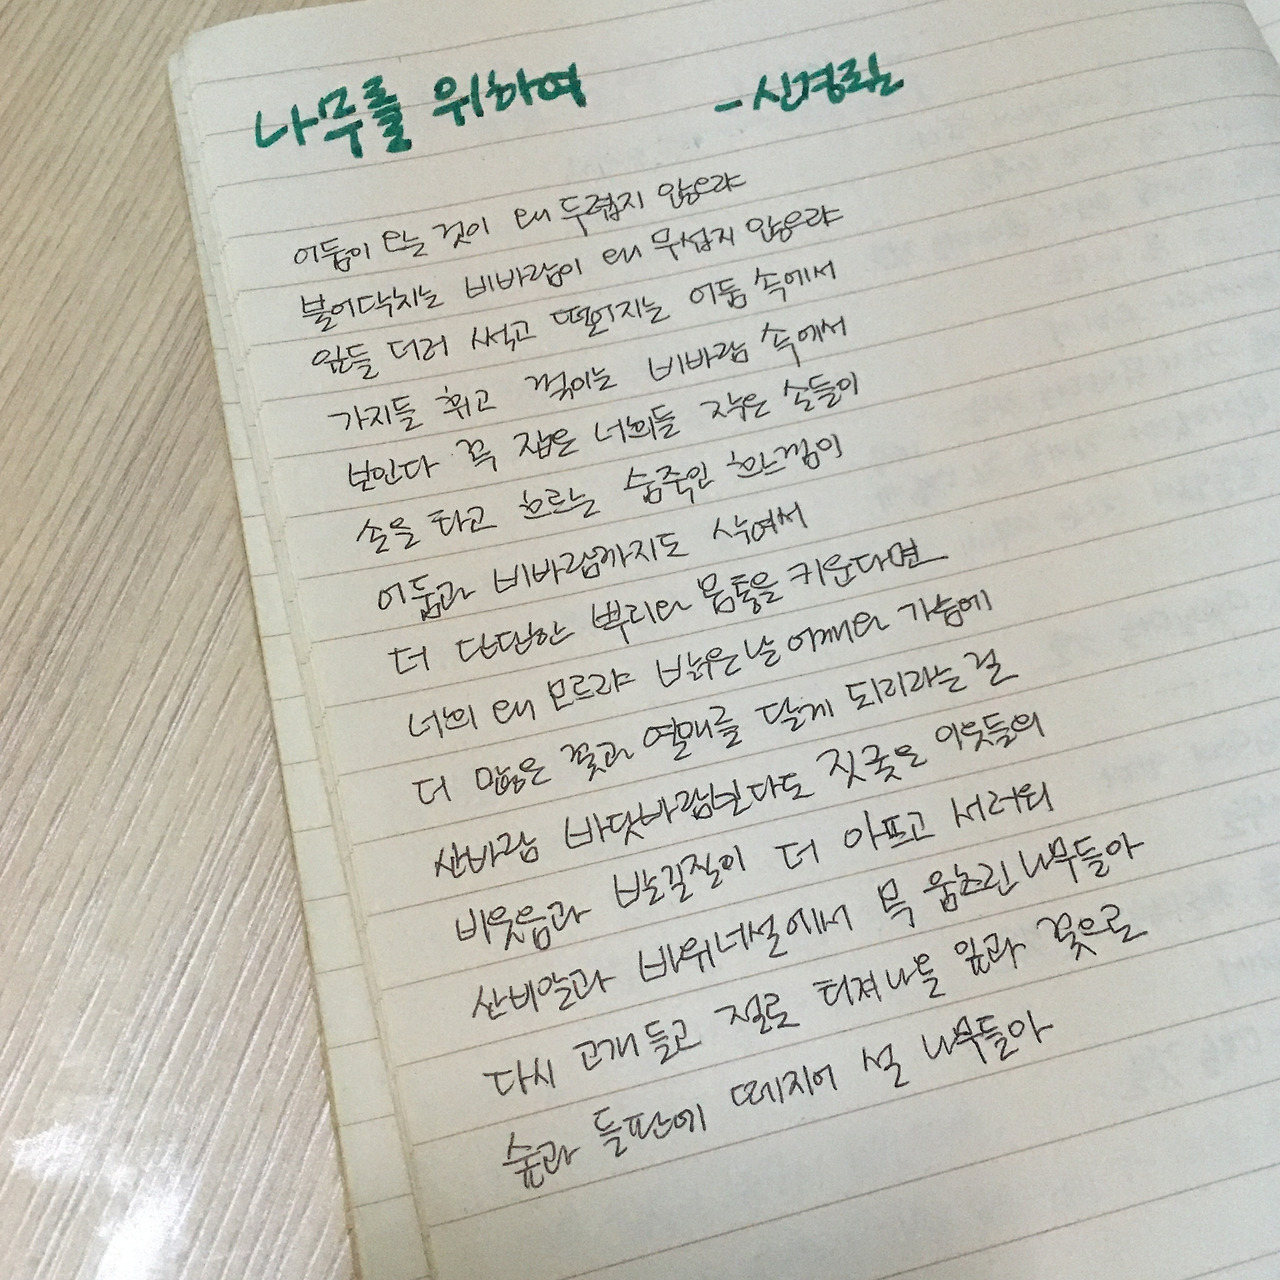 나무를 위하여 - 신경림
어둠이 오는 것이 왜 두렵지 않으랴
불어닥치는 비바람이 왜 무섭지 않으랴
잎들 더러 썩고 떨어지는 어둠 속에서
가지들 휘고 꺾이는 비바람 속에서
보인다 꼭 잡은 너희들 작은 손들이
손을 타고 흐르는 숨죽인 흐느낌이
어둠과 비바람까지도 삭여서
더 단단한 뿌리와 몸통을 키운다면
너희 왜 모르랴 밝은날 어깨와 가슴에
더 많은 꽃과 열매를 달게 되리라는 걸
산바람 바닷바람보다도 짓궂은 이웃들의
비웃음과 발길질이 더 아프고 서러워
산비알과 바위너설에서 목 움츠린 나무들아
다시 고개 들고 절로 터져나올 잎과 꽃으로
숲과 들판에 떼지어 설 나무들아